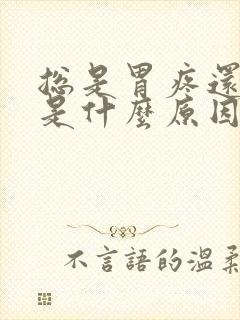 總是胃疼還
是什麼原因
不言語的溫柔